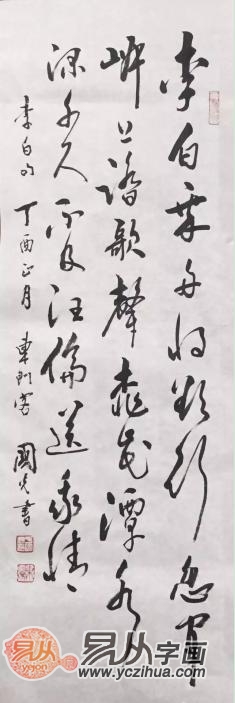 李白乘舟将欲行忽聞
岸上踏歌聲桃花潭水
深千尺不及汪倫送我情
李白句 丁酉正月 國光書
易从
易从字画
www.yczihua.com